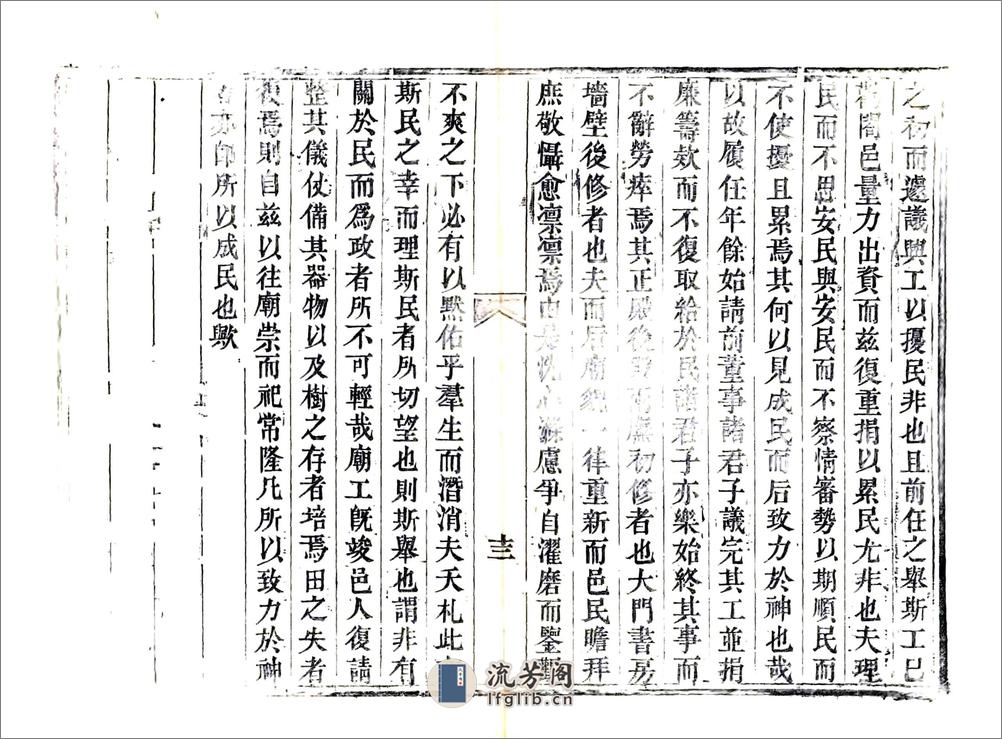 之初而遽議興工以擾民非也且前任之舉斯工已
闔邑量力出資而茲復重捐以累民尤非也夫理
民而不思安民與安民而不察情審勢以期順民而
不使擾且累焉其何以見成民而后致力於神也哉
以故履任年餘始請前董事諸君子議完其工並捐
廉籌欸而不復取給於民諸君子亦樂始終其事而
不辭勞瘁焉其正殿後 初修者也大門書房
墻壁後修者也夫而后廟貌一律重新而邑民瞻拜
庶敬懾愈凜凜焉由是洗心滌慮爭自濯磨而鑒觀
十三
不爽之下必有以黙佑乎羣生而潛消夫夭札此
斯民之幸而理斯民者所切望也則斯舉也謂非有
關於民而爲政者所不可輕哉廟工旣竣邑人復請
整其儀仗備其器物以及樹之存者培焉田之失者
復焉則自茲以往廟崇而祀常隆凡所以致力於神
亦卽所以成民也歟
流芳阁
lfglib.cn